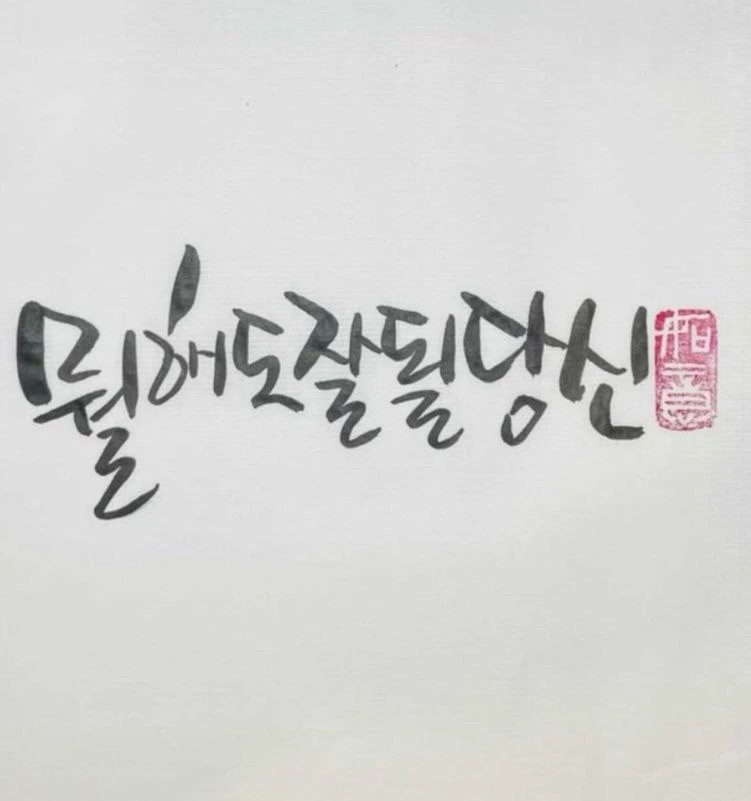 뭘해도잘될당신